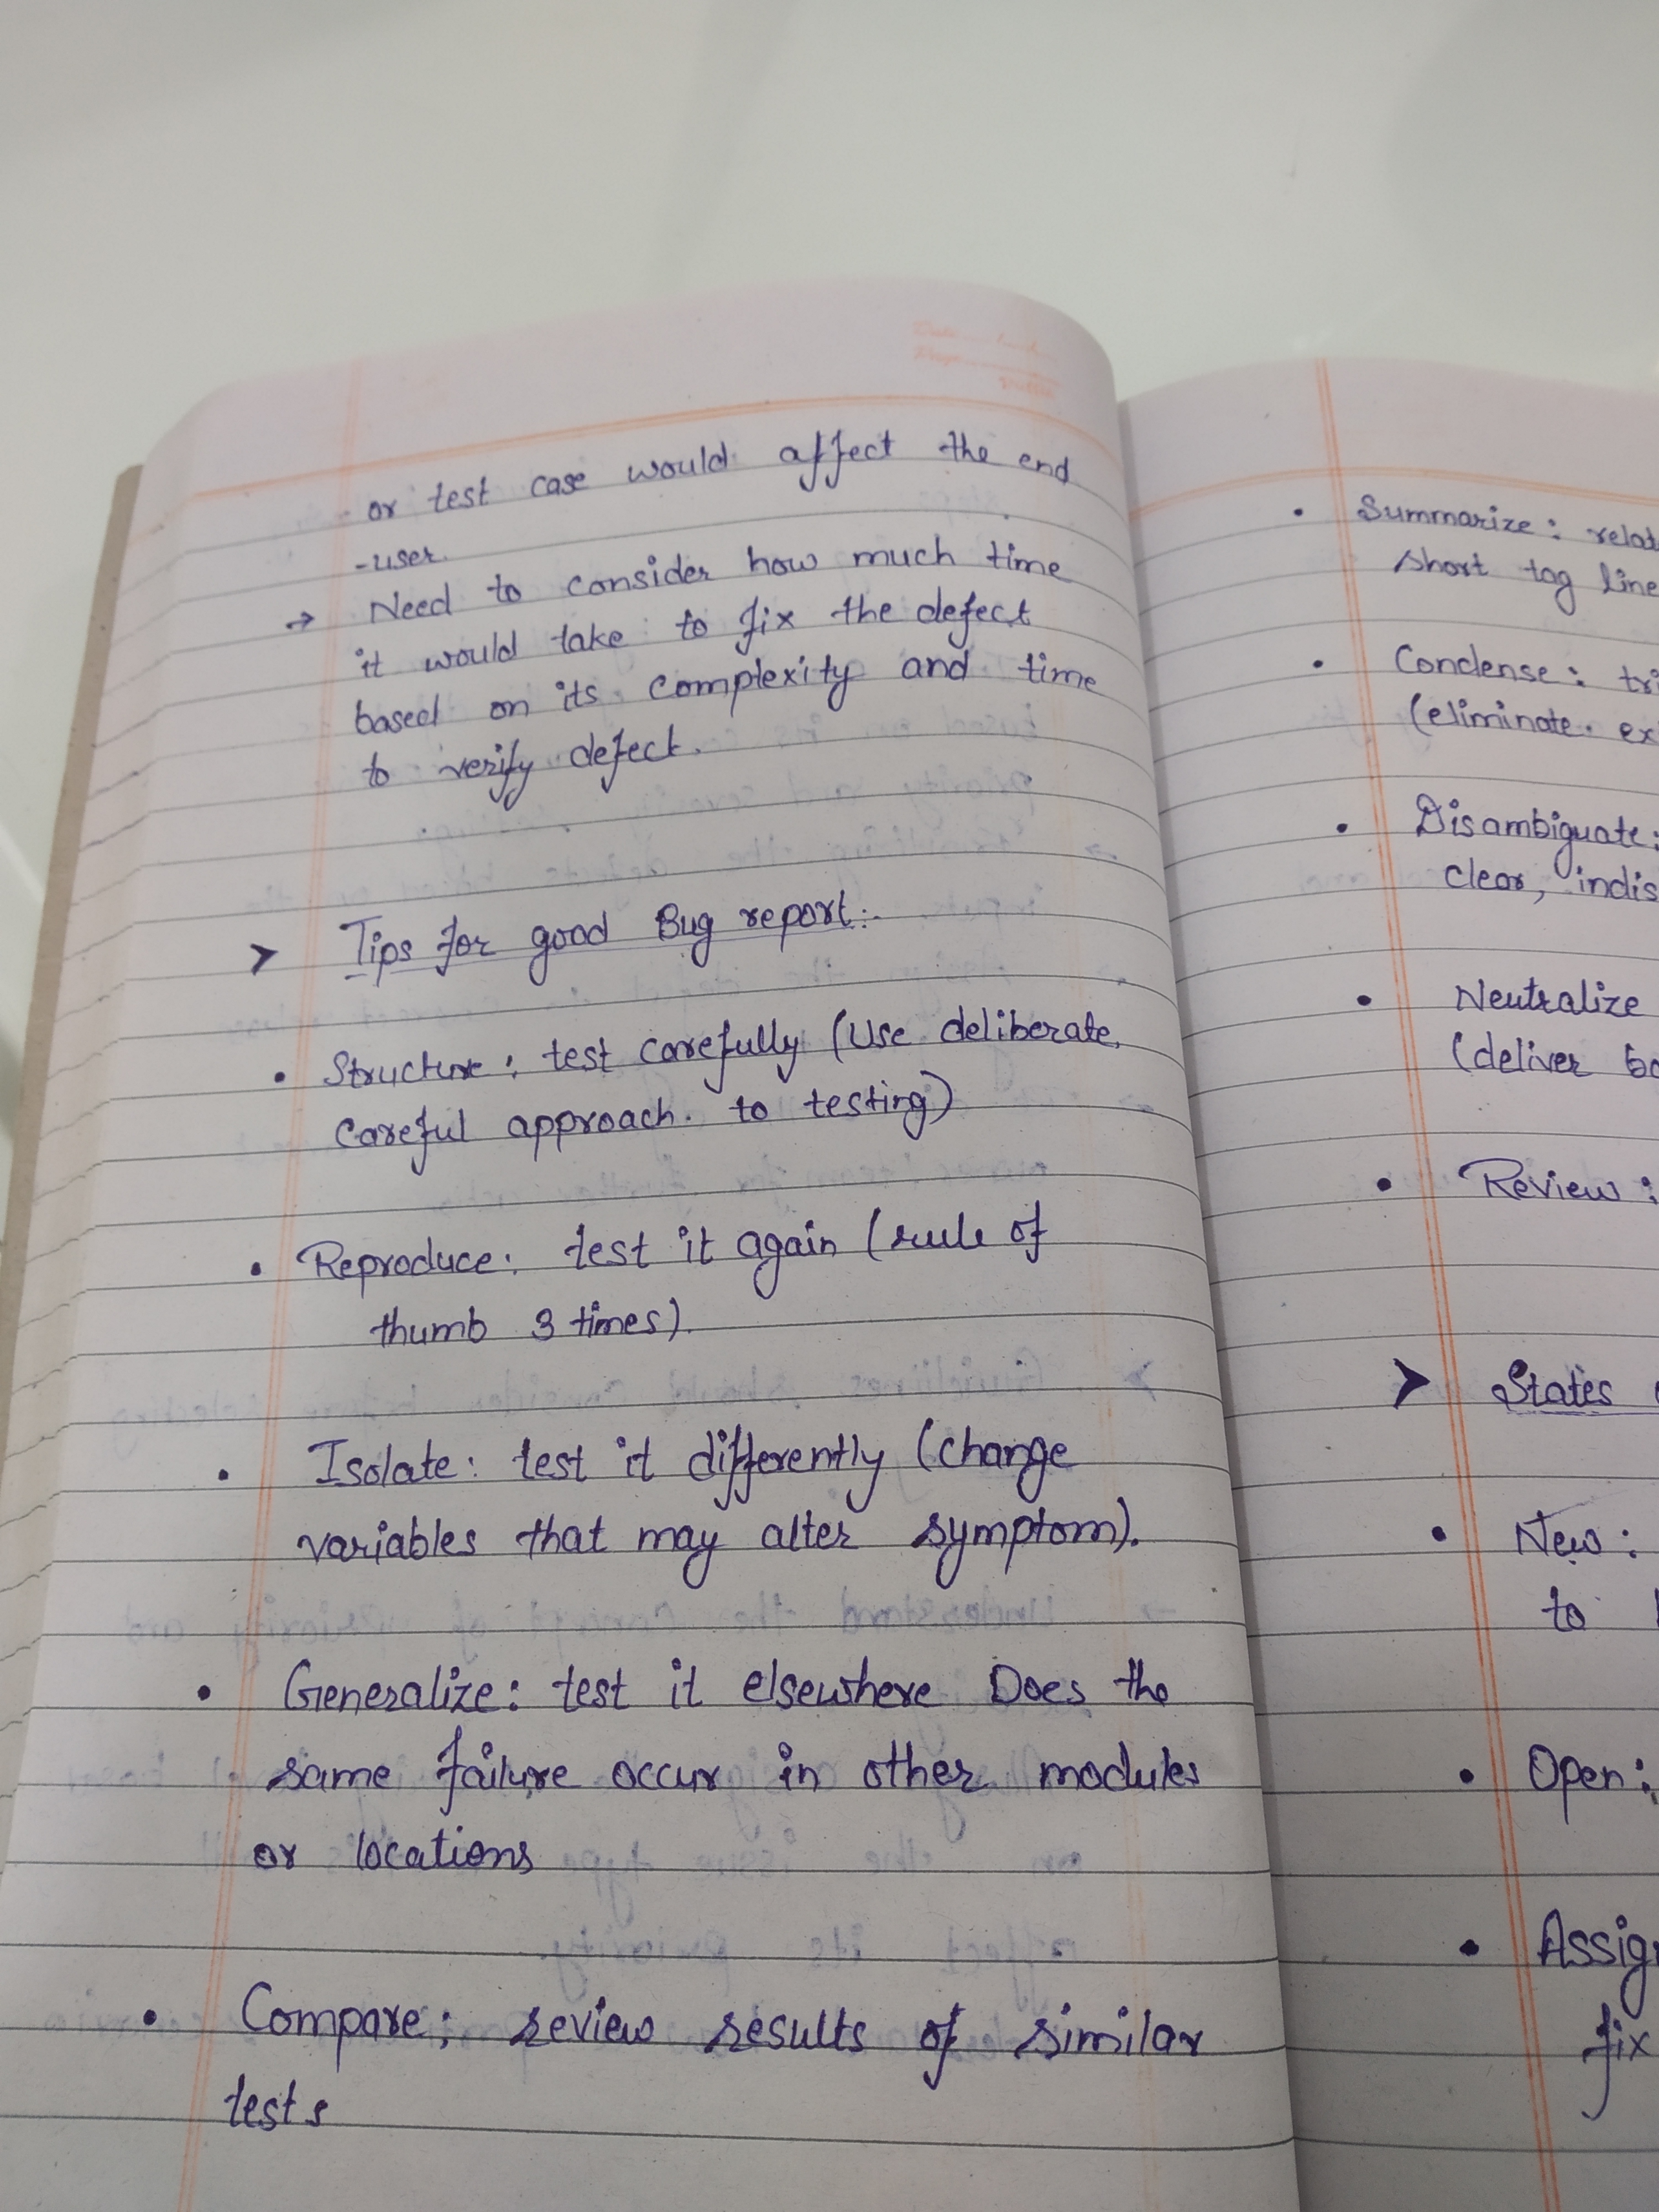 or test case would affect the end
-user.
→ Need to consider how much time
it would take to fix the defect
based on its complexity and time
to verify defect.
➤ Tips for good Bug report:-
• Structure: test carefully (Use deliberate,
careful approach. to testing)
• Reproduce: test it again (rule of
thumb 3 times).
• Isolate: test it differently (change
variables that may alter symptom).
• Generalize: test it elsewhere Does the
same failure occur in other modules
or locations
• Compare: review results of similar
tests
• Summarize: relat
short tag line
• Condense: tri
(eliminate. ex
• Disambiguate:
clear, indis
• Neutralize
(deliver ba
• Review:
➤ States
• New:
to
• Open:
• Assig
fix